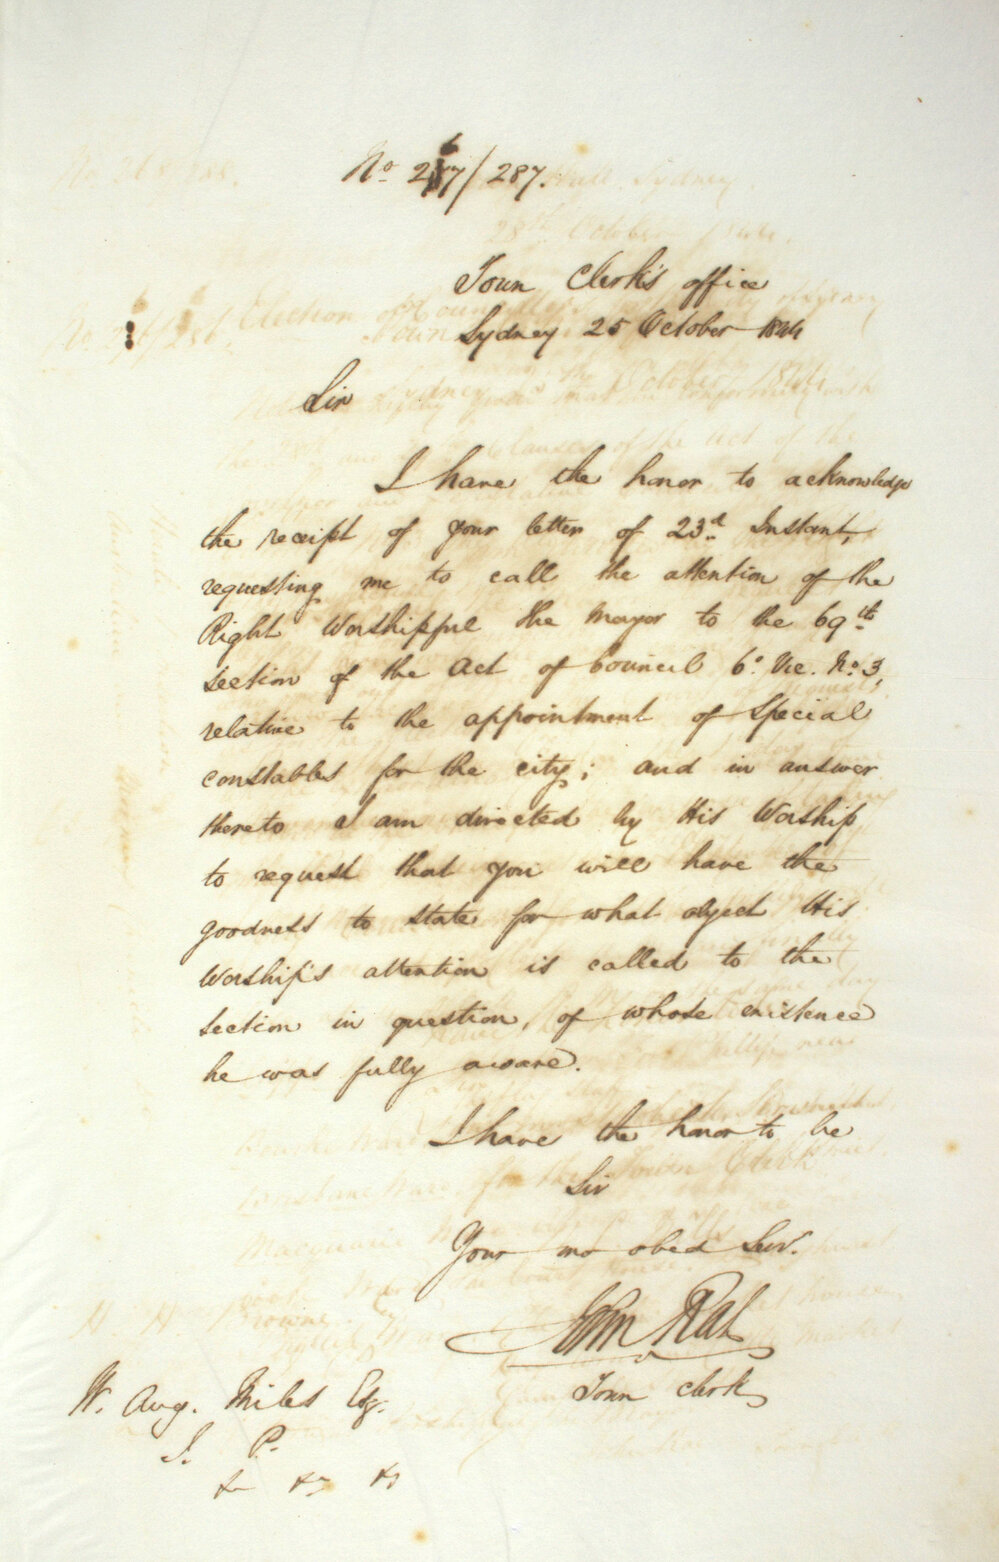 No 267/287.
Town Clerk's office
Sydney 25 October 1844
Sir
I have the honor to acknowledge
the receipt of your letter of 23d Instant,
requesting me to call the attention of the
Right Worshipful the Mayor to the 69th
section of the Act of Council 6o Vic. No 3,
relative to the appointment of Special
constables for the city; and in answer
thereto I am directed by His Worship
to request that you will have the
goodness to state for what object His
Worship's attention is called to the
section in question, of whose existence
he was fully aware.
I have the honor to be
Sir
Your mo obed Serv.
John Rae
Town Clerk
W. Aug. Miles Esq.
J. P.
&c &c &c